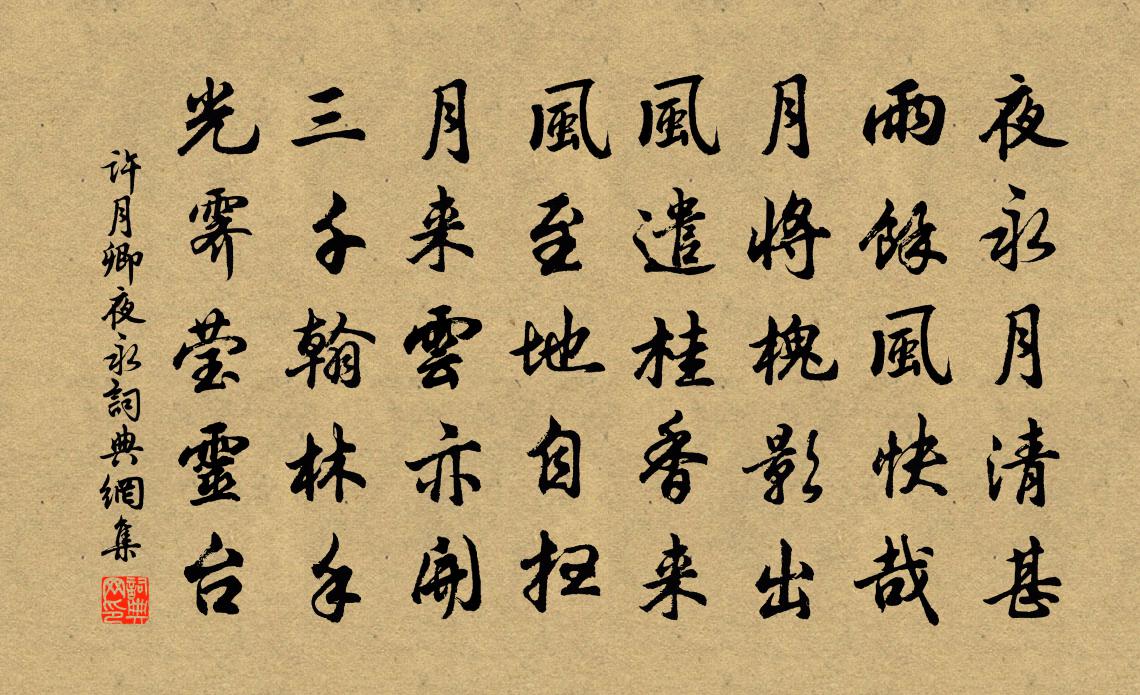 夜永月清甚
雨餘風快哉
月將槐影出
風遣桂香来
風至地自扫
月来雲亦開
三千翰林手
光霁莹靈台
许月卿夜永詞典網集
詞典网印